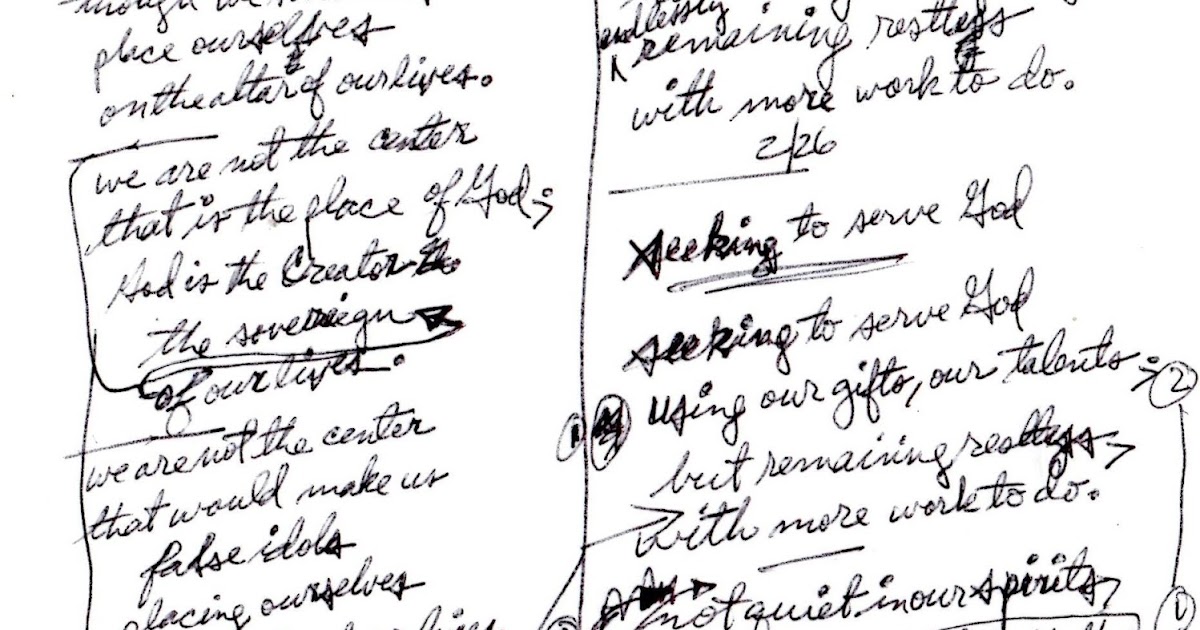 though we
place ourselves
on the altar of our lives.
we are not the center
that is the place of God;
God is the Creator
the sovereign
of our lives.
we are not the center
that would make us
false idols
placing ourselves
lives
endlessly
remaining restless
with more work to do.
2/26
seeking to serve God
seeking to serve God
using our gifts, our talents;
but remaining restless
with more work to do.
not quiet in our spirits,
1
2
1